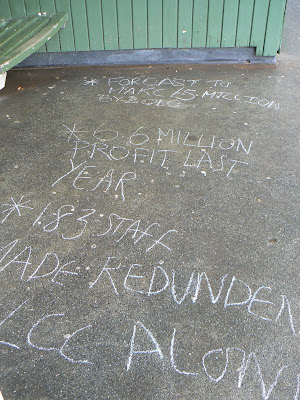 * FORCAST TO
MAKE £5 MILLION
BY
* 6.6 MILLION
PROFIT LAST
YEAR
* 183 STAFF
MADE REDUNDEN
LCC ALON